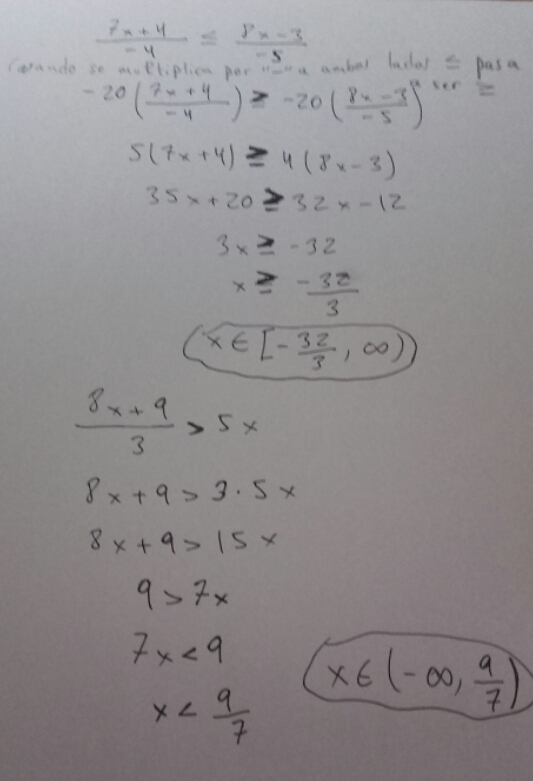 7x+4/-4 ≤ 8x-3/-5
Cuando se multiplica por "-" a ambos lados ≤ pasa
a ser ≥
-20(7x+4/-4) ≥ -20(8x-3/-5)
5(7x+4) ≥ 4(8x-3)
35x+20 ≥ 32x-12
3x ≥ -32
x ≥ -32/3
x ∈ [-32/3, ∞)
8x+9/3 > 5x
8x+9 > 3·5x
8x+9 > 15x
9 > 7x
7x < 9
x < 9/7
x ∈ (-∞, 9/7)